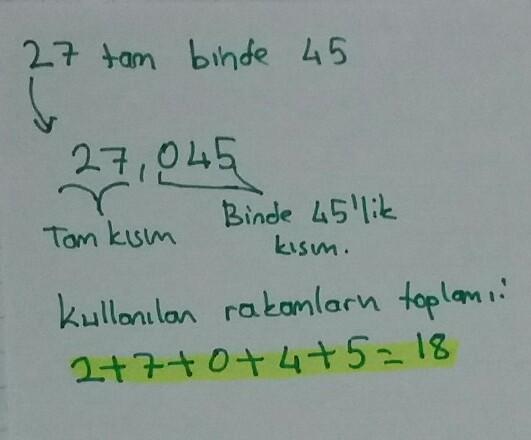 27 tam binde 45
27,045
Tam kısım
Binde 45'lik
kısım.
Kullanılan rakamların toplamı:
2+7+0+4+5=18